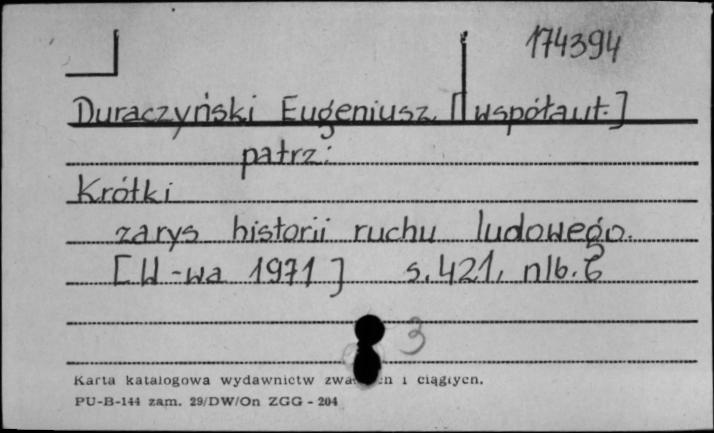 174394
Duraczyński Eugeniusz. [współaut.]
patrz:
Krótki
zarys historii ruchu ludowego.
[W-wa 1971] s. 421, nlb. 6
3
Karta katalogowa wydawnictw i ciągłych.
PU-B-144 zam. 29/DW/On ZGG - 204